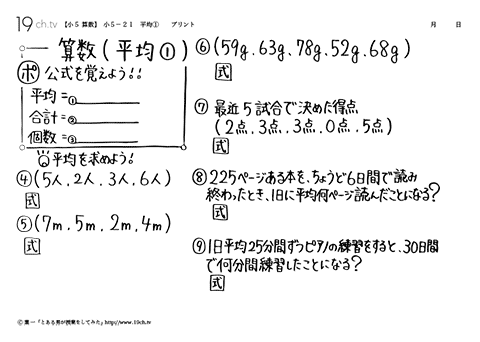 19ch.tv 【小5 算数】 小5-21 平均① プリント 月 日
算数(平均①)
ポ 公式を覚えよう!!
平均=①
合計=②
個数=③
平均を求めよう!
④(5人,2人,3人,6人)
式
⑤(7m,5m,2m,4m)
式
⑥(59g,63g,78g,52g,68g)
式
⑦ 最近5試合で決めた得点
(2点,3点,3点,0点,5点)
式
⑧225ページある本を、ちょうど6日間で読み
終わったとき、1日に平均何ページ読んだことになる?
式
⑨1日平均25分間ずつピアノの練習をすると、30日間
で何分間練習したことになる?
式
© 葉一「とある男が授業をしてみた」http://www.19ch.tv